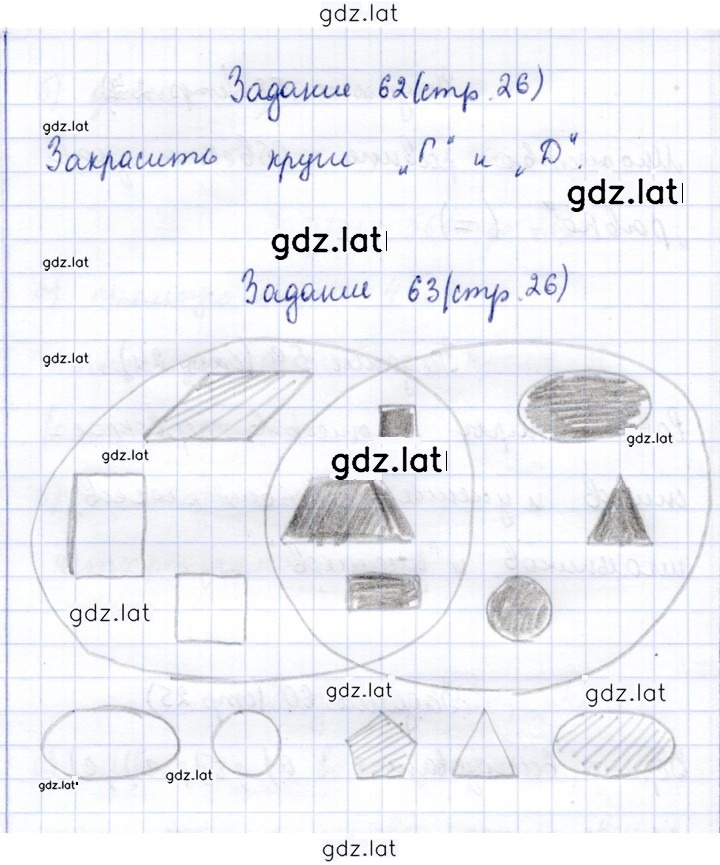 gdz.lat
Задание 62(стр. 26)
gdz.lat
Закрасить круги „Г“ и „D“.
gdz.lat
gdz.lat
gdz.lat
Задание 63(стр. 26)
gdz.lat
gdz.lat
gdz.lat
gdz.lat
gdz.lat
gdz.lat
gdz.lat
gdz.lat
gdz.lat
gdz.lat